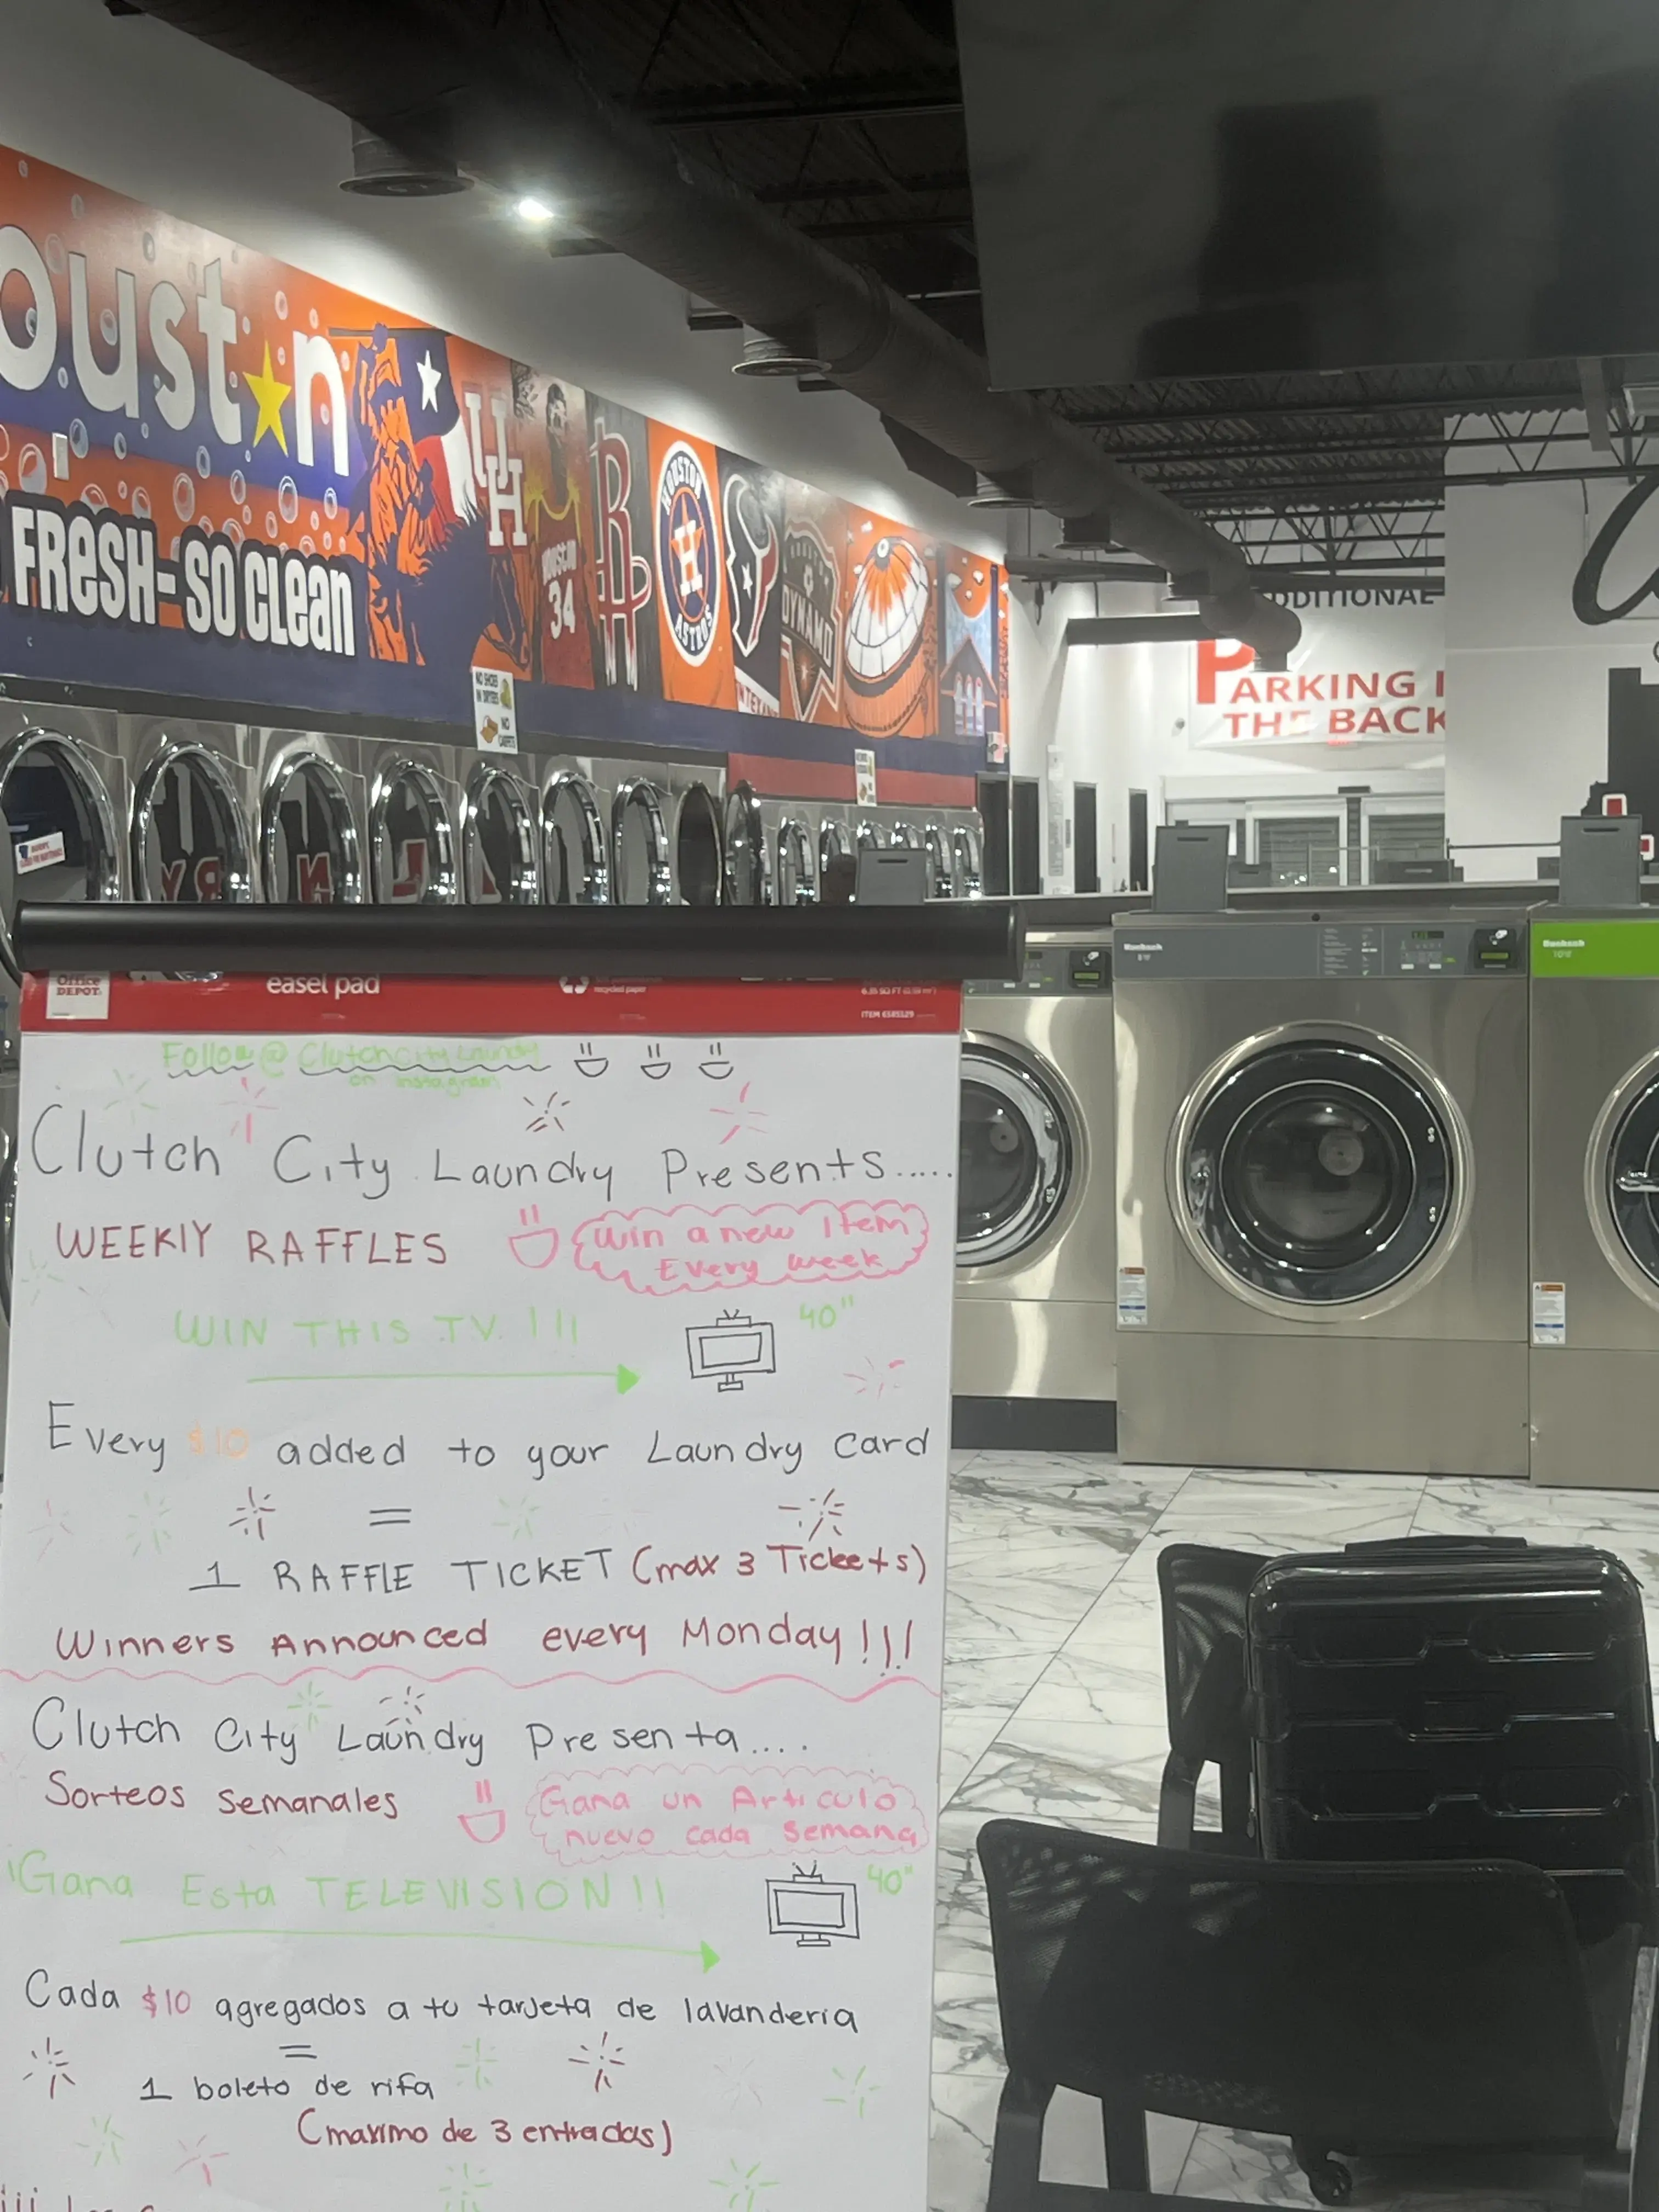 oust★n
FRESH-SO CLEAN
UH
HOUSTON
34
R
HOUSTON
H
ASTROS
DYNAMO
TEXANS
NO SHOES
IN DRYERS
NO
CARPETS
ADDITIONAL
PARKING I
THE BACK
Huebsch
Huebsch
Office
DEPOT
easel pad
recycled paper
Follow @ Clutchcitylaundry
on instagram
Clutch City Laundry Presents.....
WEEKLY RAFFLES
Win a new Item
Every week
WIN THIS TV !!!
40"
Every $10 added to your Laundry card
=
1 RAFFLE TICKET (max 3 Tickets)
Winners Announced every Monday!!!
Clutch City Laundry Presenta....
Sorteos Semanales
Gana un Articulo
nuevo cada Semana
¡Gana Esta TELEVISION!!
40"
Cada $10 agregados a tu tarjeta de lavanderia
=
1 boleto de rifa
(maximo de 3 entradas)